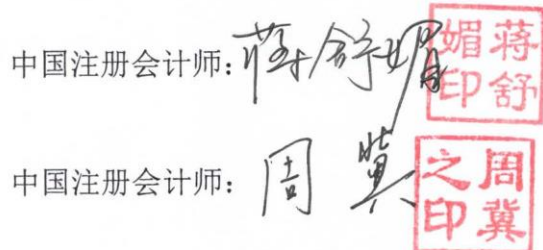 中国注册会计师：蒋舒媚
蒋舒媚印
中国注册会计师：周冀
周冀之印